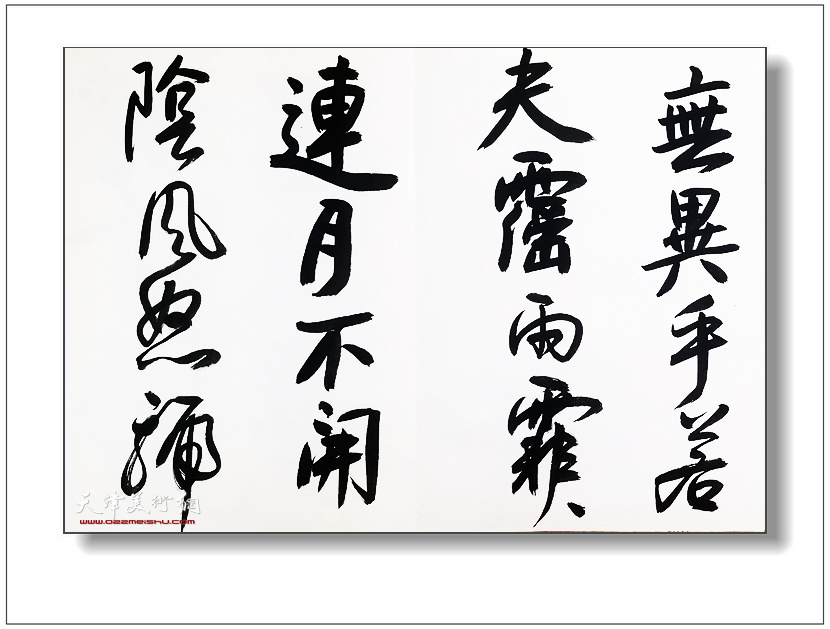 無異乎若
夫霪雨霏〻
連月不開
陰風怒號
天津美術網
www.022meishu.com